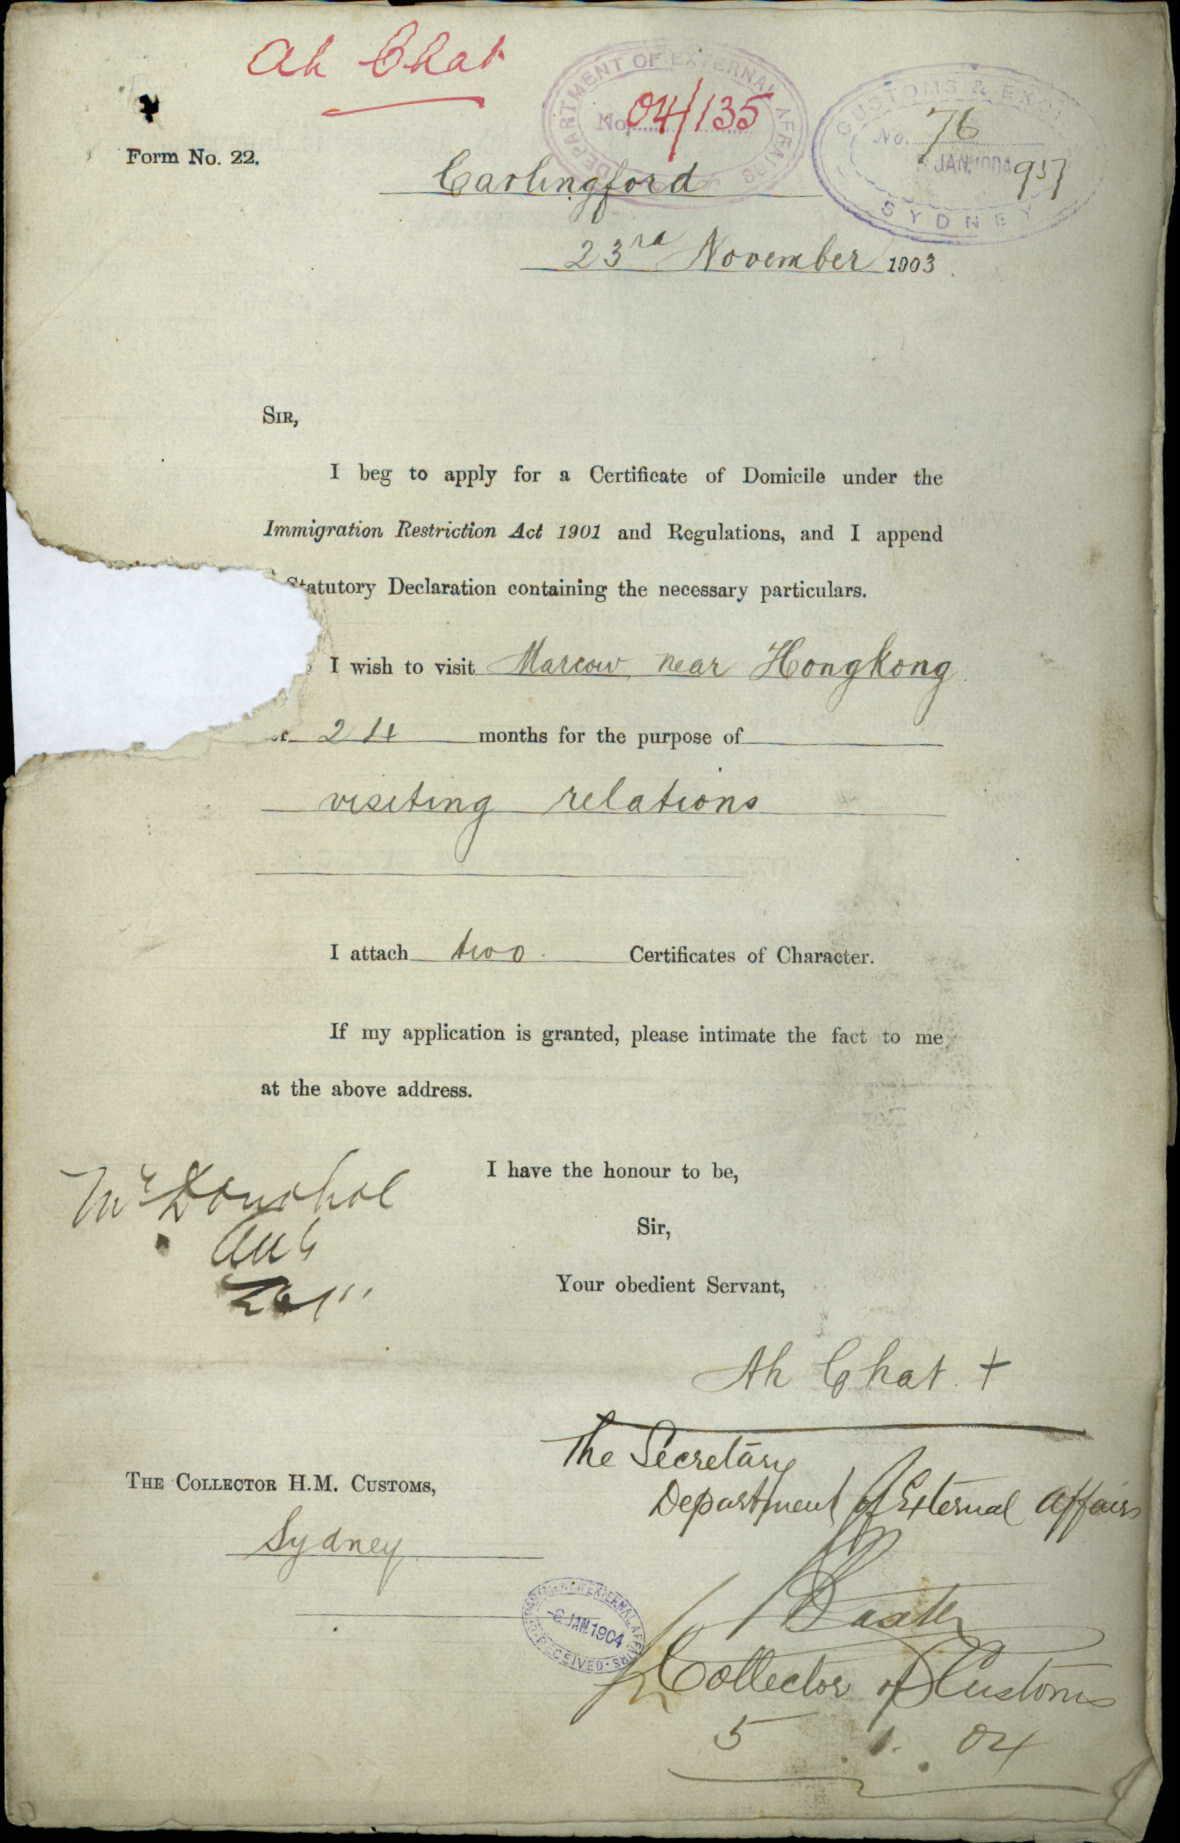 Ah Chat
DEPARTMENT OF EXTERNAL AFFAIRS
No. 04/135
CUSTOMS &
No. 76
JAN. 1904
957
SYDNEY
Form No. 22.
Carlingford
23rd November 1903
SIR,
I beg to apply for a Certificate of Domicile under the
Immigration Restriction Act 1901 and Regulations, and I append
Statutory Declaration containing the necessary particulars.
I wish to visit Marcow near Hongkong
24 months for the purpose of
visiting relations
I attach two Certificates of Character.
If my application is granted, please intimate the fact to me
at the above address.
I have the honour to be,
Sir,
Your obedient Servant,
Ah Chat. +
THE COLLECTOR H.M. CUSTOMS,
Sydney
The Secretary
Department of External Affairs
Baxter
Collector of Customs
5.1.04
-6 JAN 1904
RECEIVED